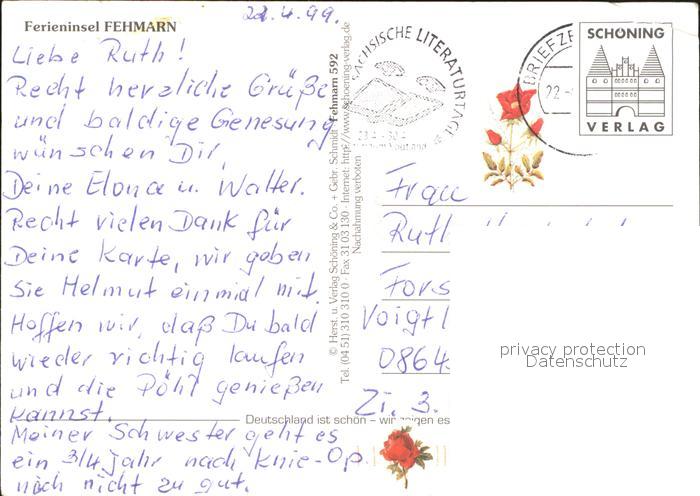 Ferieninsel FEHMARN
22.4.99.
Liebe Ruth!
Recht herzliche Grüße
und baldige Genesung
wünschen Dir,
Deine Elona u. Walter.
Recht vielen Dank für
Deine Karte, wir geben
sie Helmut einmal mit.
Hoffen wir, daß Du bald
wieder richtig laufen
und die Pöhl genießen
kannst.
Meiner Schwester geht es
ein 3/4 Jahr nach Knie-Op.
noch nicht zu gut.
© Herst. u. Verlag Schöning & Co. + Gebr. Schmidt · Fehmarn 592
Tel. (04 51) 310 310 0 · Fax 31 03 130 · Internet: http://www.schoening-verlag.de
Nachahmung verboten
SÄCHSISCHE LITERATURTAGE
23.4.-30.4.
BRIEFZE
22.
SCHÖNING
VERLAG
Frau
Ruth
Fors
Voigtl
0864
Zi. 3.
Deutschland ist schön – wir zeigen es
privacy protection
Datenschutz